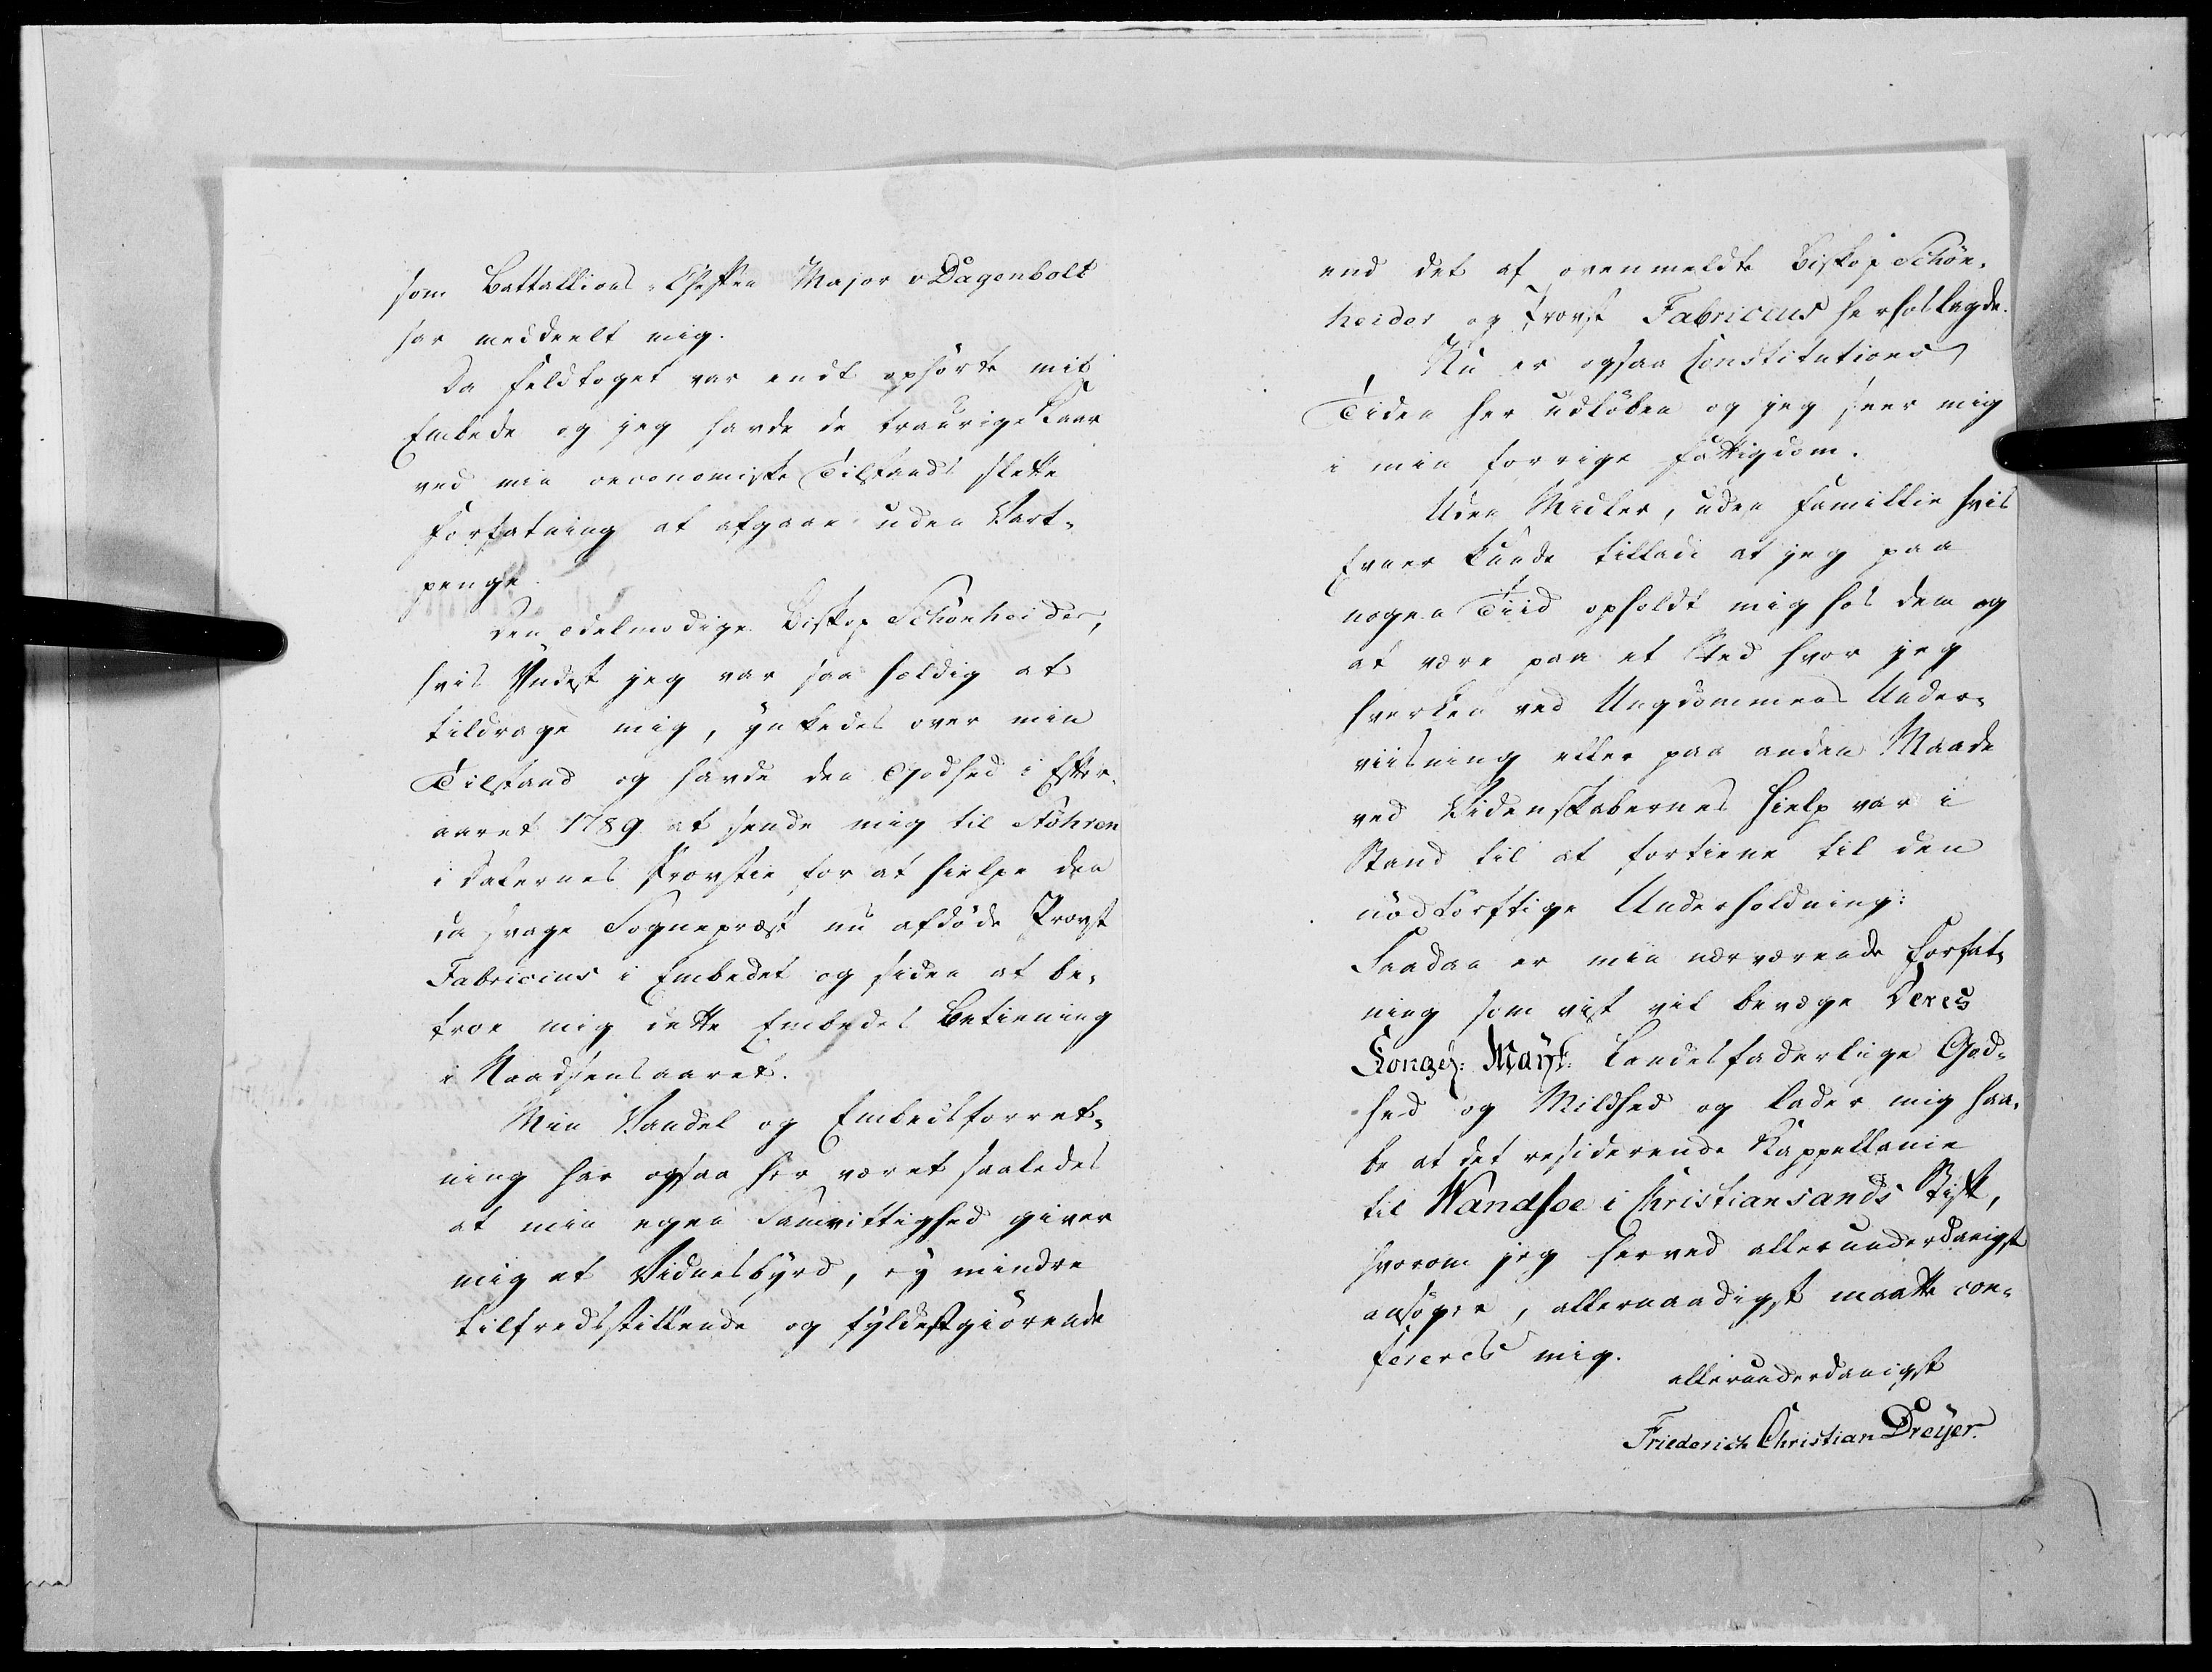 som Battallions-Cheffen Major v Dagenbolt
har meddeelt mig.
Da feldtoget var endt ophörte mit
Embede og jeg havde de traurige Kaar
ved min oeconomiske Tilstands slette
Forfatning at afgaae uden Vart-
penge.
Den ædelmodige Biskop Schönheider,
hvis Yndest jeg var saa heldig at
tildrage mig, ynkedes over min
Tilstand og havde den Godhed i Efter-
aaret 1789 at sende mig til Stöhren
i Dalernes Provstie for at hielpe den
da svage Sognepræst nu afdöde Provst
Fabricius i Embedet og siden at be-
troe mig dette Embedes Betiening
i Naadsensaaret.
Min Vandel og Embedsforret-
ning har ogsaa her været saaledes
at min egen Samvittighed giver
mig et Vidnesbyrd, ey mindre
tilfredsstillende og fyldestgiörende
end det af ovenmeldte Biskop Schön-
heider og Provst Fabricius herhoslagde.
Nu er ogsaa Constitutions
Tiden her udlöben og jeg seer mig
i min forrige Fattigdom.
Uden Midler, uden Famillie hvis
Evner kunde tillade at jeg paa
nogen Tiid opholdt mig hos dem og
at være paa et Sted hvor jeg
hverken ved Ungdommens Under-
viisning eller paa anden Maade
ved Videnskabernes Hielp var i
Stand til at fortiene til den
nödtörftige Underholdning:
Saadan er min nærværende Forfat-
ning som vist vil bevæge Deres
Kongel: Mayt: Landsfaderlige God-
hed og Mildhed og lader mig haa-
be at det residerende Kappellanie
til Wandsoe i Christiansands Stift,
hvorom jeg herved allerunderdanigst
ansöger, allernaadigst maatte con-
fereres mig.
allerunderdanigst
Friederich Christian Dreyer.